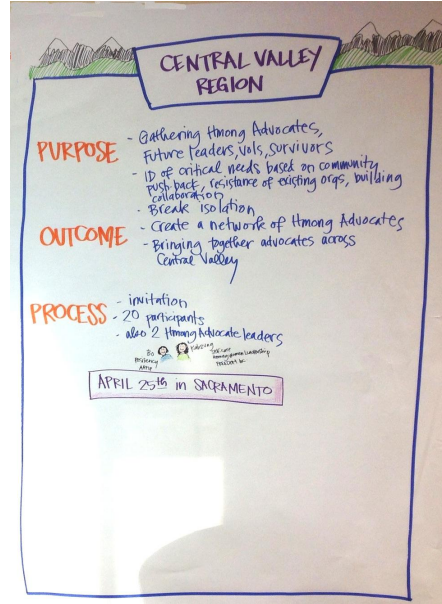 CENTRAL VALLEY
REGION
PURPOSE
- Gathering Hmong Advocates,
Future leaders, vols, survivors
- ID of critical needs based on community
push back, resistance of existing orgs, building
collaboration
- Break isolation
OUTCOME
- Create a network of Hmong Advocates
- Bringing together advocates across
Central Valley
PROCESS
- invitation
- 20 participants
- also 2 Hmong Advocate leaders
Bo
APRIL 25th in SACRAMENTO